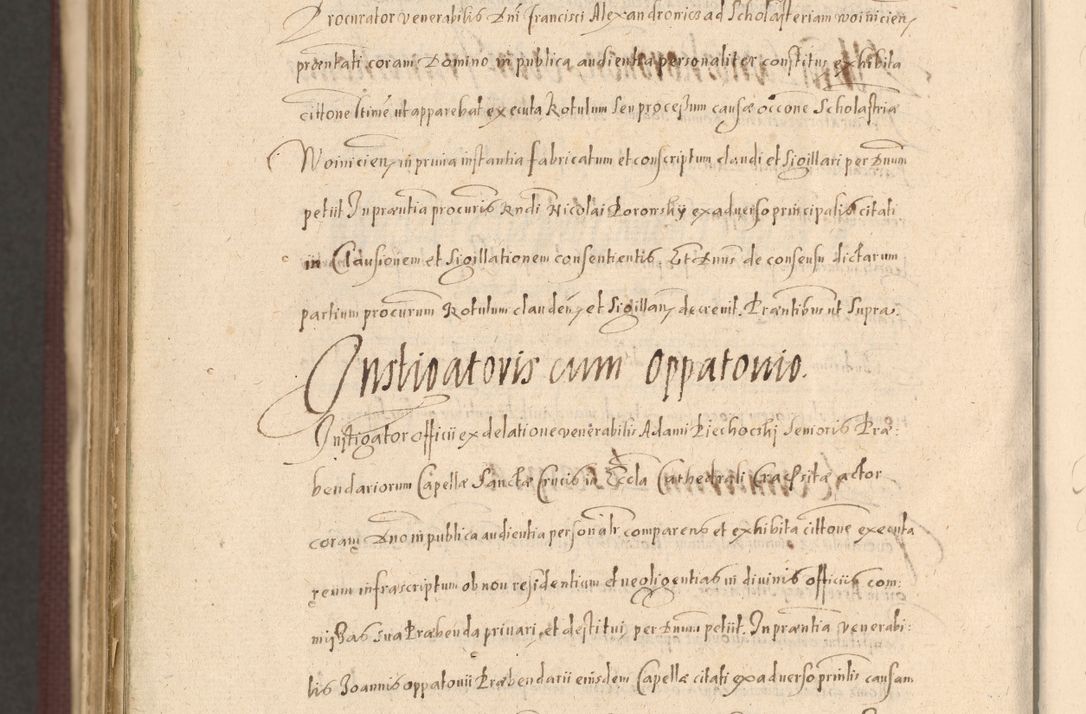 Procurator venerabilis Dni francisci Alexandronicz ad Scholasteriam woinicien,
præntati coram Domino in publica audientia personaliter constitus exhibita
cittone ltime ut apparebat executa Rotulum seu processum causæ occone Scholastriæ
Woinicien, in prima instantia fabricatum et conscriptum claudi et sigillari per Dnum
petiit. In præntia procuris Rndi Nicolai Borowskij ex adverso principalis citati
in Clausionem et sigillationem consentientis. Et Dnus de consensu dictarum
partium procurum Rotulum clauden, et sigillan, decrevit. Præntibus ut supra.
Instigatoris cum Oppatouio.
Instigator officii ex delatione venerabilis Adami Piechocskj senioris Præ:
bendariorum Capellæ Sanctæ Crucis in Eccla Cathedrali Crac sitæ actor
coram Dno in publica audientia personalr comparens et exhibita cittone executa
reum infrascriptum ob non residentiam et negligentias in divinis officiis com:
missas sua Præbenda privari, et destitui, per Dnum petiit. In præntia venerabi:
lis Joannis oppatouii Præbendarii eiusdem Capellæ citati ex adverso princlis causam